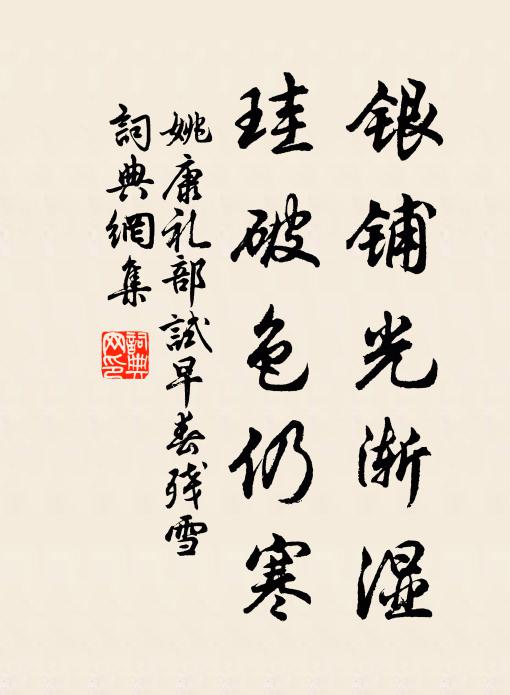 银铺光渐湿
珪破色仍寒
姚康礼部試早春残雪
詞典網集
詞典
网印